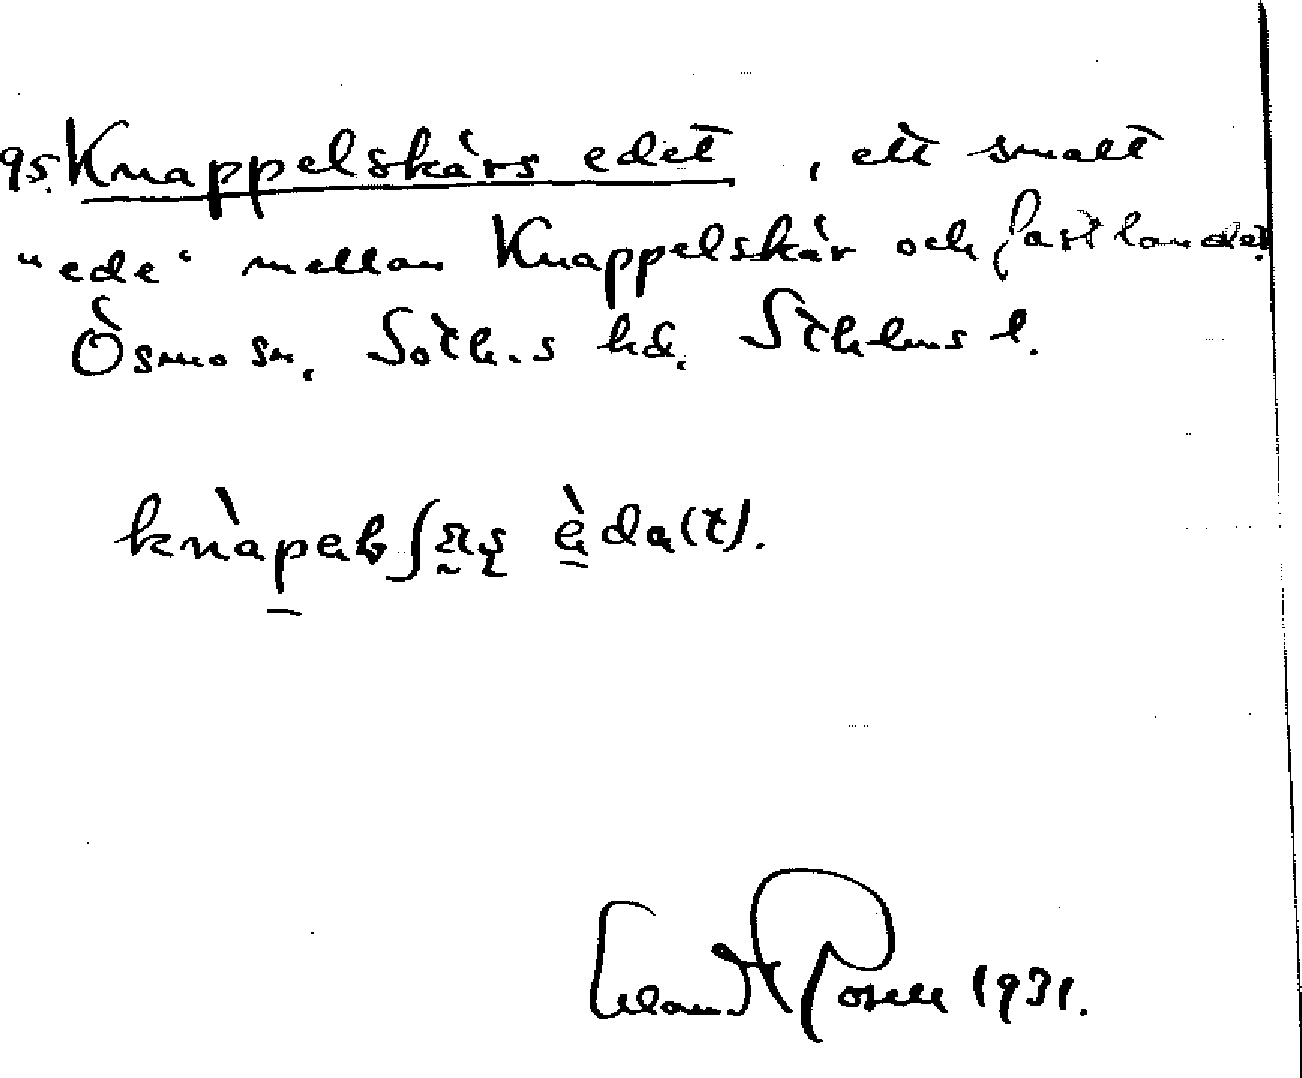 95. Knappelskärs edet, ett smalt
"ede" mellan Knappelskär och fastlandet.
Ösmo sn. Soth.s hd. Sthlms l.
knàpal ʃæ̰ʂ èda(t).
1931.